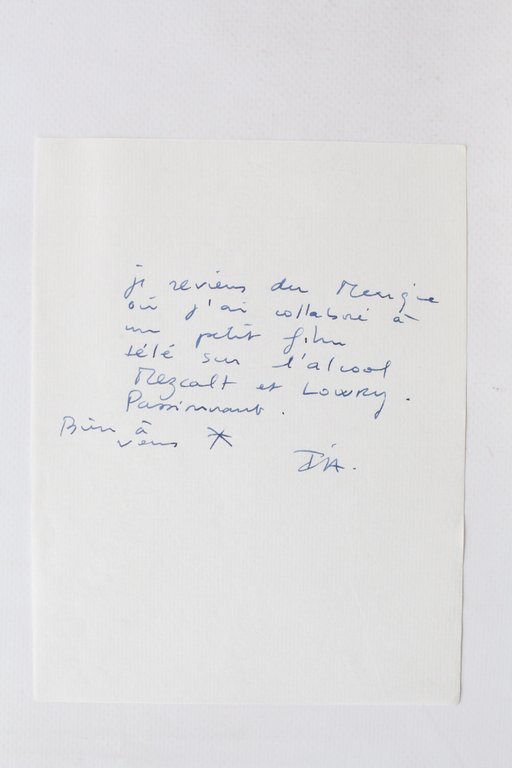 je reviens du Mexique
où j'ai collaboré à
un petit film
télé sur l'alcool
Mezcalt et Lowry.
Passionnant.
Bien à
vous